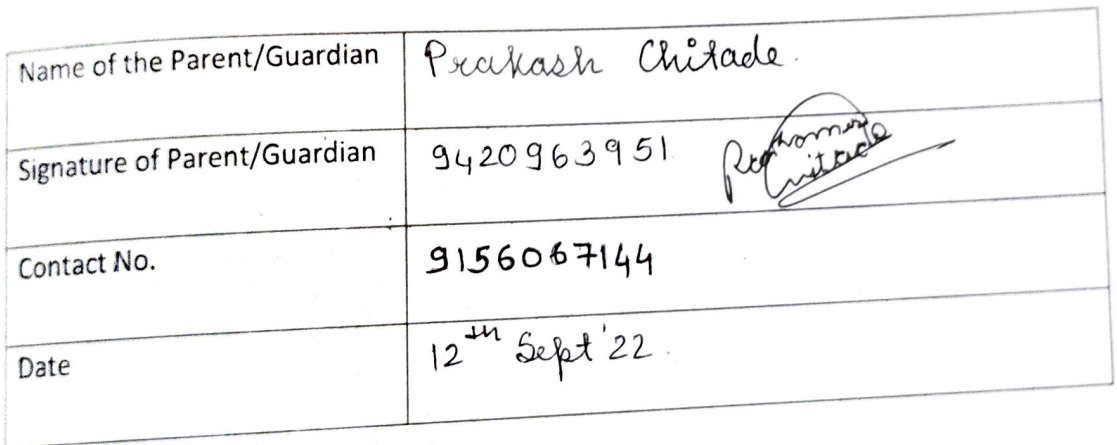 Name of the Parent/Guardian Prakash Chitade.
Signature of Parent/Guardian 9420963951 Chitade
Contact No. 9156067144
Date 12th Sept'22.